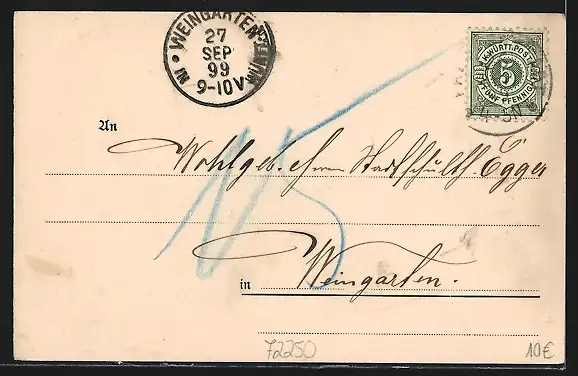 WEINGARTEN (WÜRTT.)
27
SEP
99
9-10 V
K. WÜRTT. POST
5
FÜNF PFENNIG
An
Wohlgeb. Herrn Stadtschulth. Egger
15
in Weingarten.
72250
10€